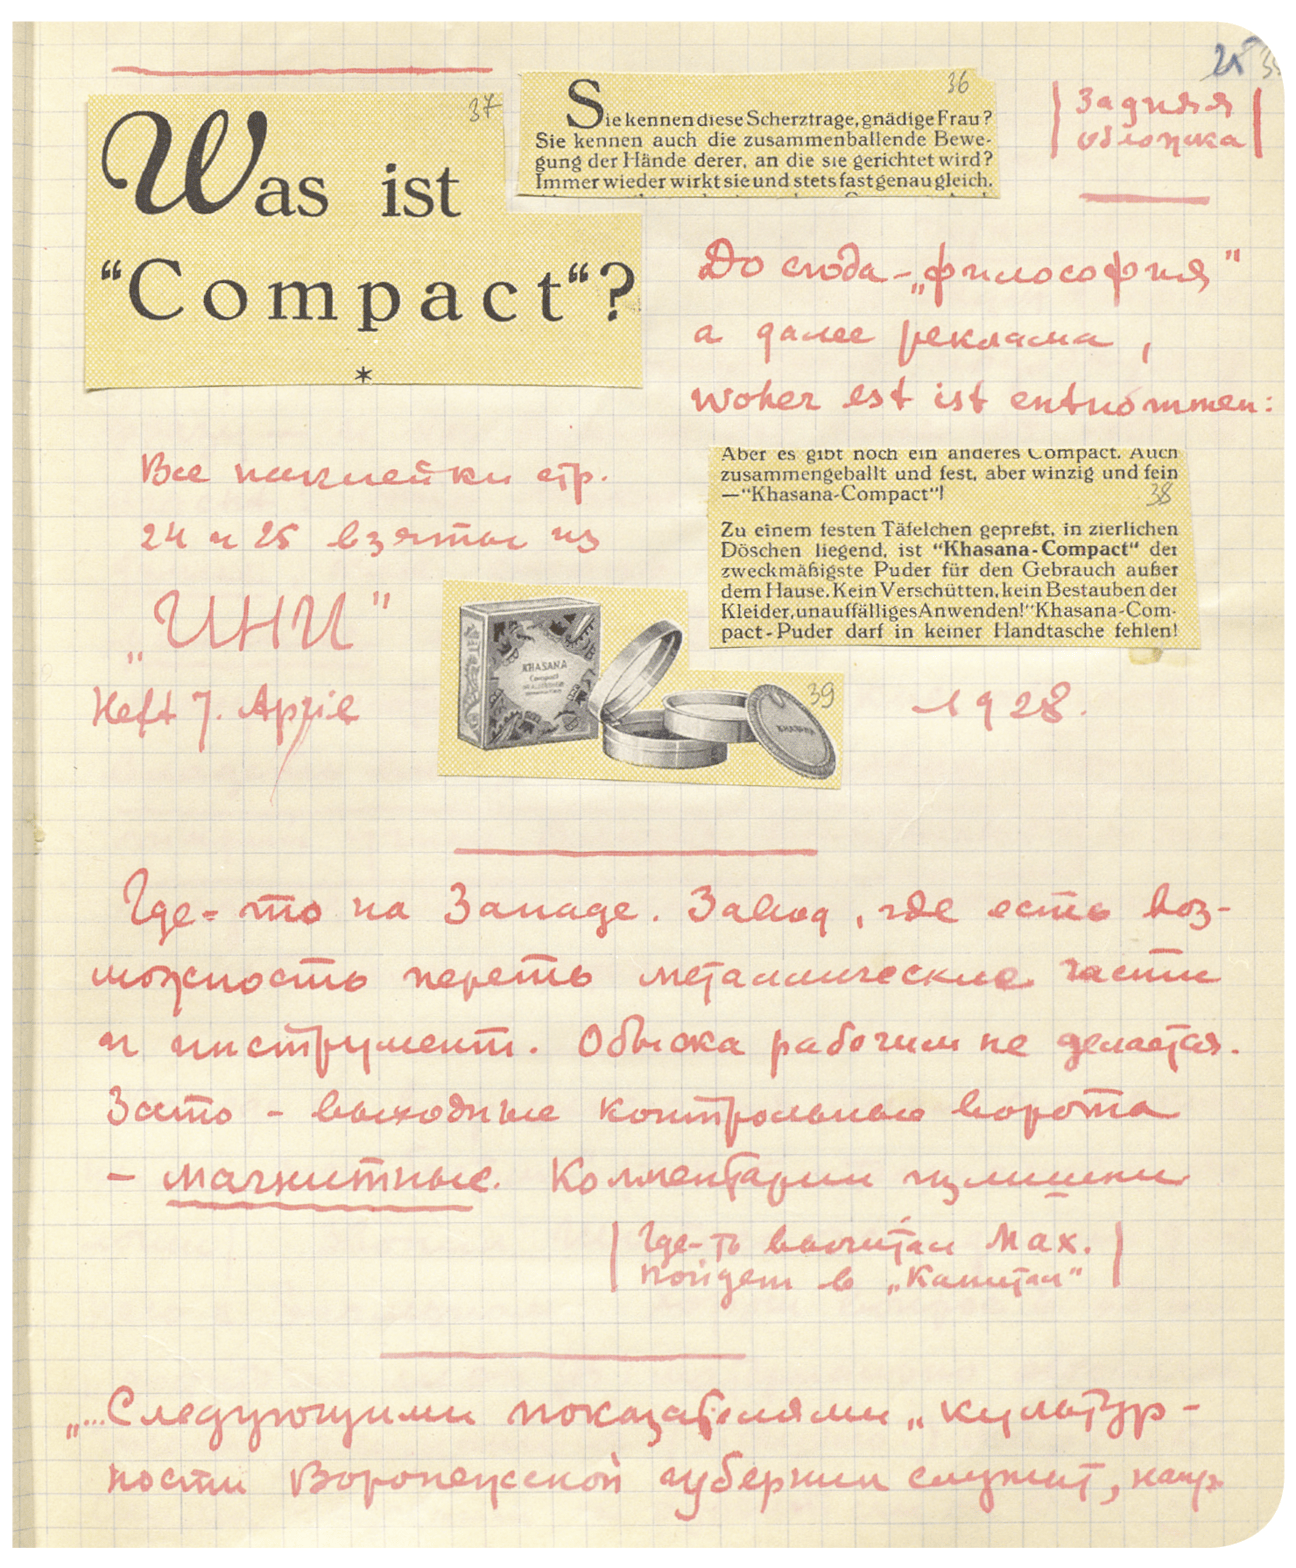 25
37
36
Was ist
“Compact“?
*
Sie kennen diese Scherztrage, gnädige Frau?
Sie kennen auch die zusammenballende Bewe-
gung der Hände derer, an die sie gerichtet wird?
Immer wieder wirkt sie und stets fast genau gleich.
Задняя
обложка
До сюда - „философия"
а далее реклама,
woher est ist entnommen:
Все наклейки стр.
24 и 25 взяты из
„УНИ"
Heft 7. April
1928.
Aber es gibt noch ein anderes Compact. Auch
zusammengeballt und fest, aber winzig und fein
—“Khasana-Compact“!
38
Zu einem festen Täfelchen gepreßt, in zierlichen
Döschen liegend, ist “Khasana-Compact“ der
zweckmäßigste Puder für den Gebrauch außer
dem Hause. Kein Verschütten, kein Bestauben der
Kleider, unauffälliges Anwenden! “Khasana-Com-
pact-Puder darf in keiner Handtasche fehlen!
KHASANA
Compact
39
KHASANA
Где-то на Западе. Завод, где есть воз-
можность переть металлические части
и инструмент. Обыска рабочим не делается.
Зато - выходные контрольные ворота
- магнитные. Комментарии излишни
Где-то вычитал Мах.
Пойдет в „Капитал"
„...Следующими показателями „культур-
ности Воронежской губернии служит, напр